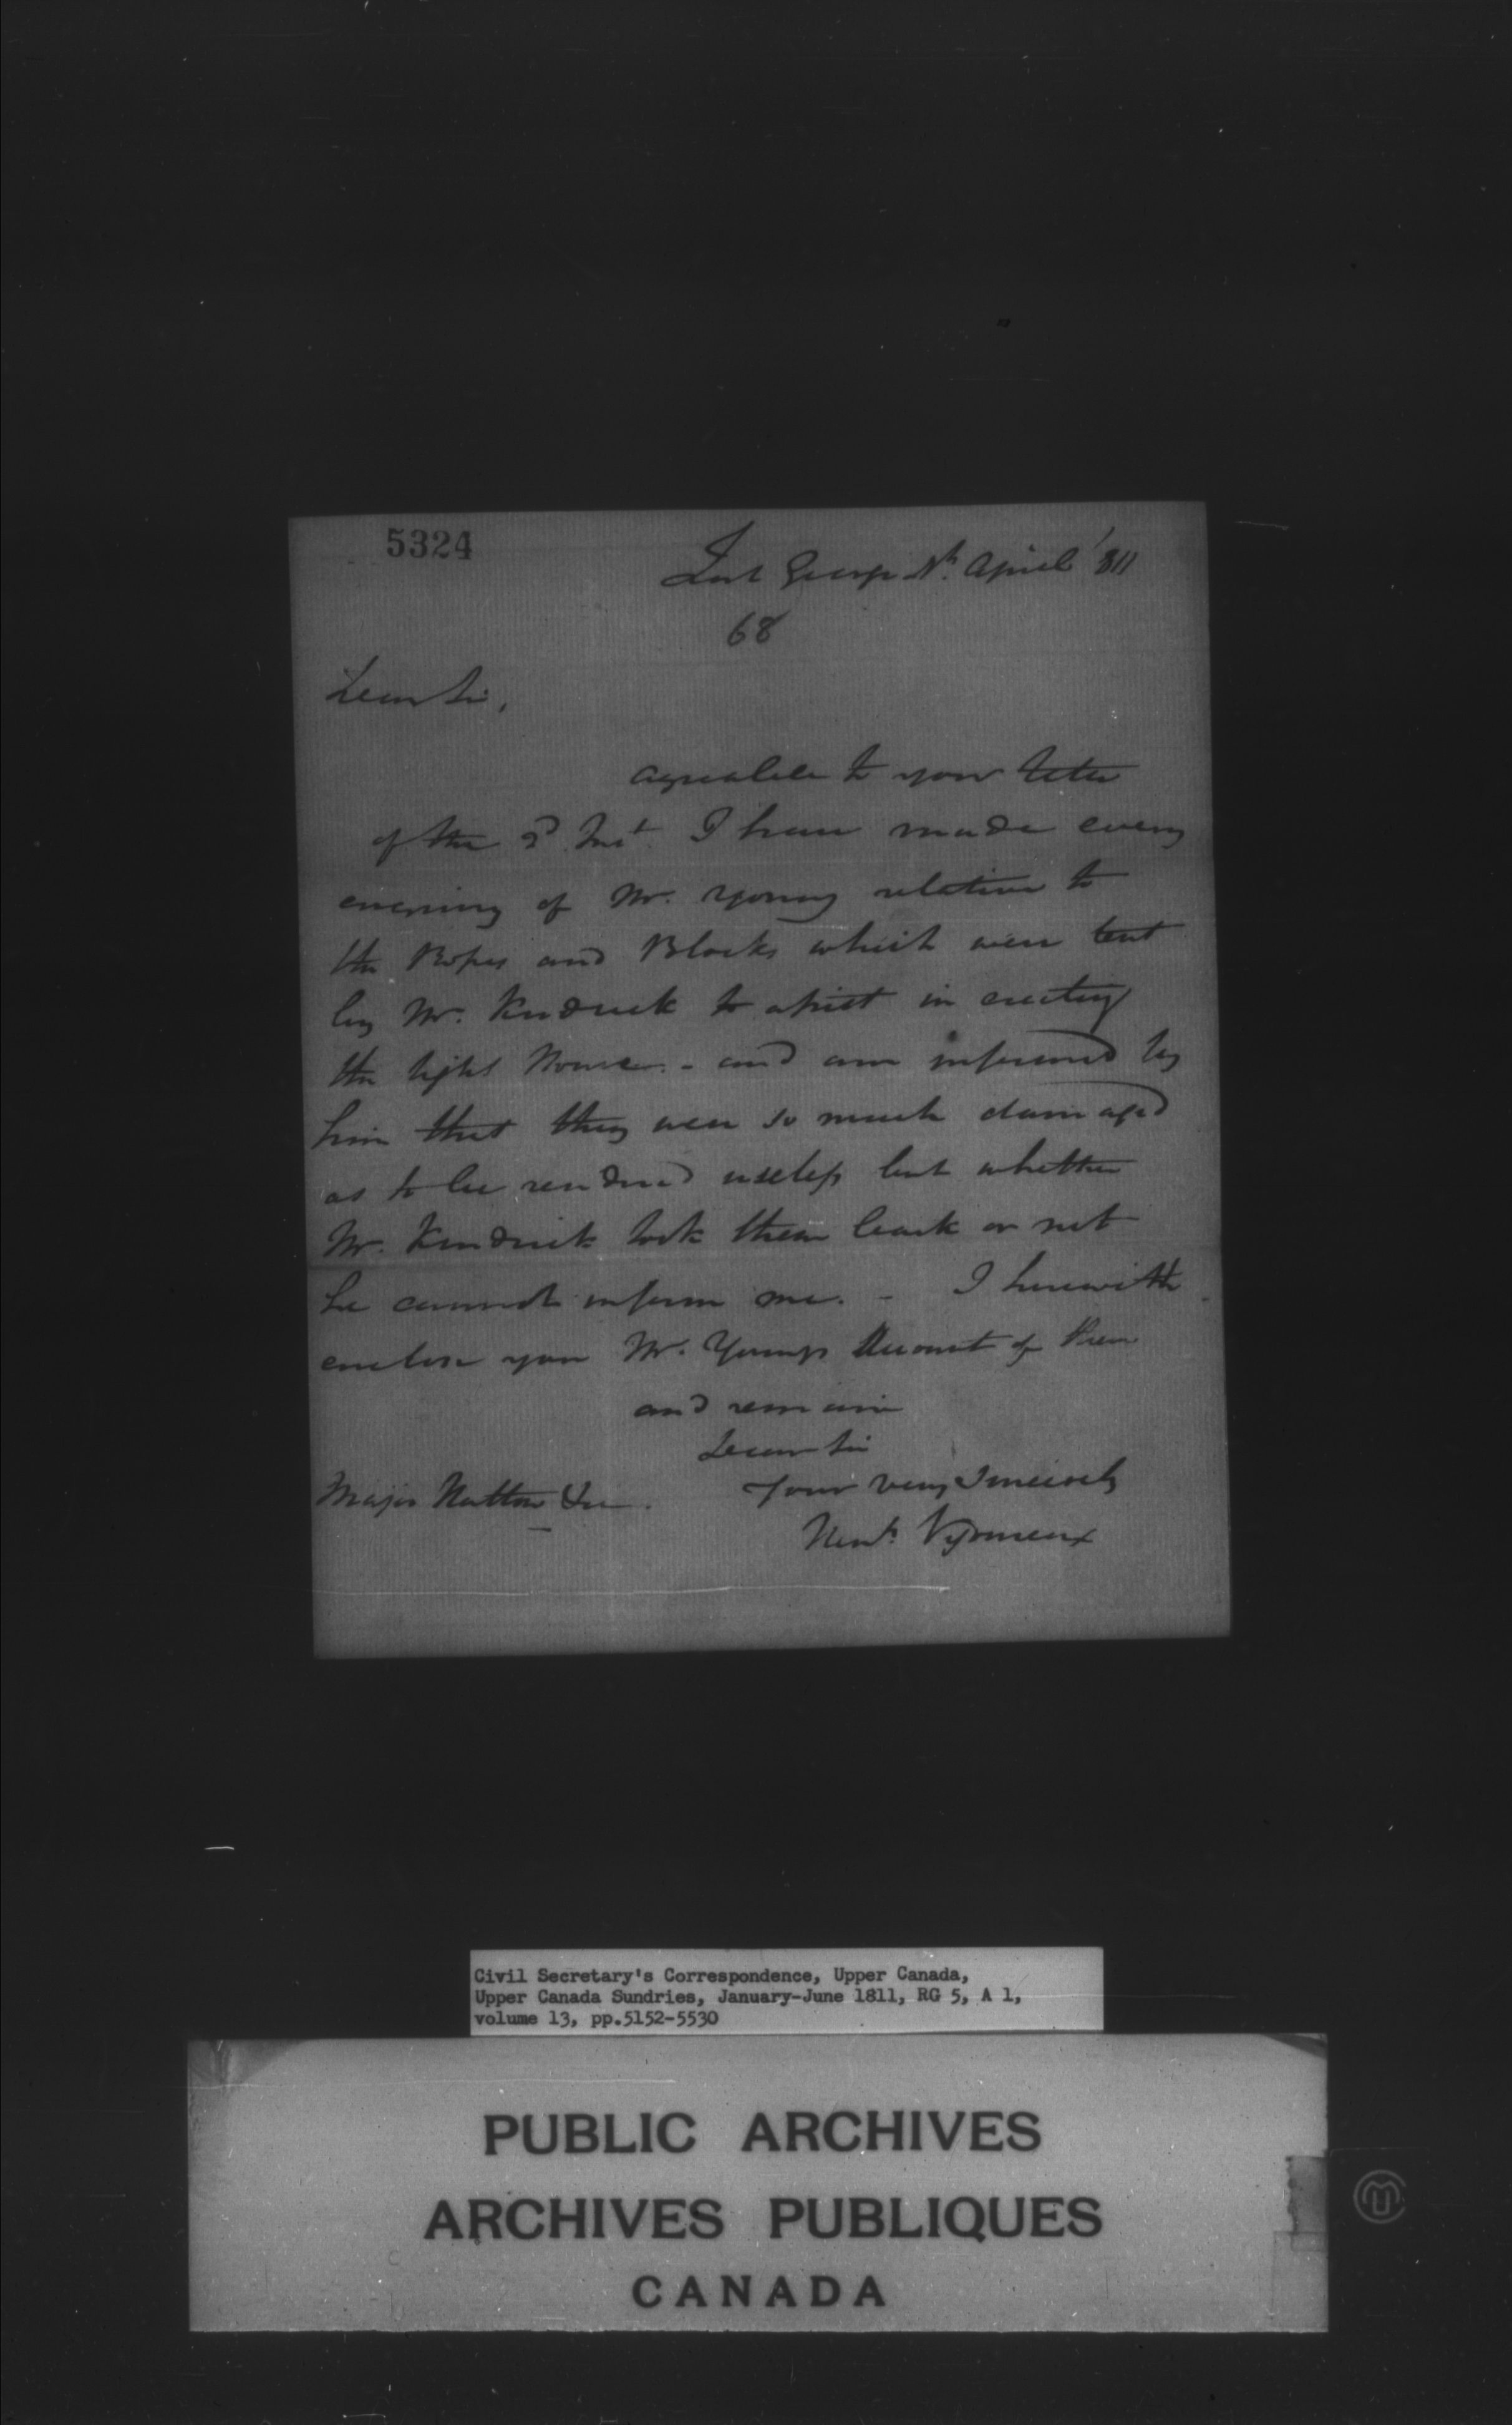 5324
Fort George April '811
68
Dear Sir,
agreable to your letter
of the 2d Inst I have made every
enquiry of Mr. Young relative to
the Ropes and Blocks which were lent
by Mr. Kendrick to assist in erecting
the light House. - and am informed by
him that they were so much damaged
as to be rendered useless but whether
Mr. Kendrick took them back or not
he cannot inform me. - I herewith
enclose you Mr. Youngs Account of them
and remain
Dear Sir
Your very Sincerely
Major Halton &c
Civil Secretary's Correspondence, Upper Canada,
Upper Canada Sundries, January-June 1811, RG 5, A 1,
volume 13, pp.5152-5530
PUBLIC ARCHIVES
ARCHIVES PUBLIQUES
CANADA